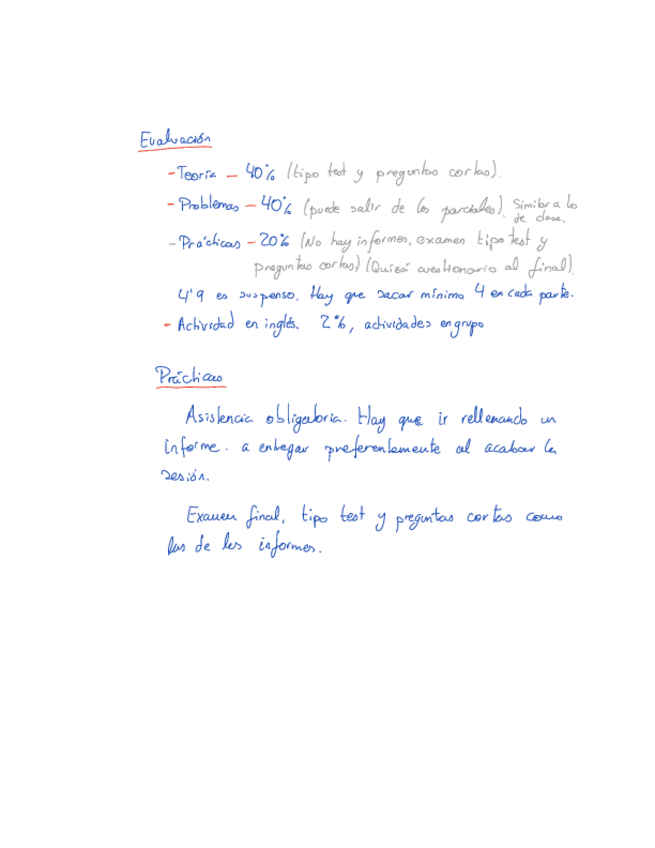 Evaluación
- Teoría - 40% (tipo test y preguntas cortas).
- Problemas - 40% (puede salir de los parciales). Similar a lo
de clase.
- Prácticas - 20% (No hay informes, examen tipo test y
preguntas cortas) (Quizá cuestionario al final).
4'9 es suspenso. Hay que sacar mínimo 4 en cada parte.
- Actividad en inglés. 2%, actividades en grupo
Prácticas
Asistencia obligatoria. Hay que ir rellenando un
informe. a entregar preferentemente al acabar la
sesión.
Examen final, tipo test y preguntas cortas como
las de los informes.